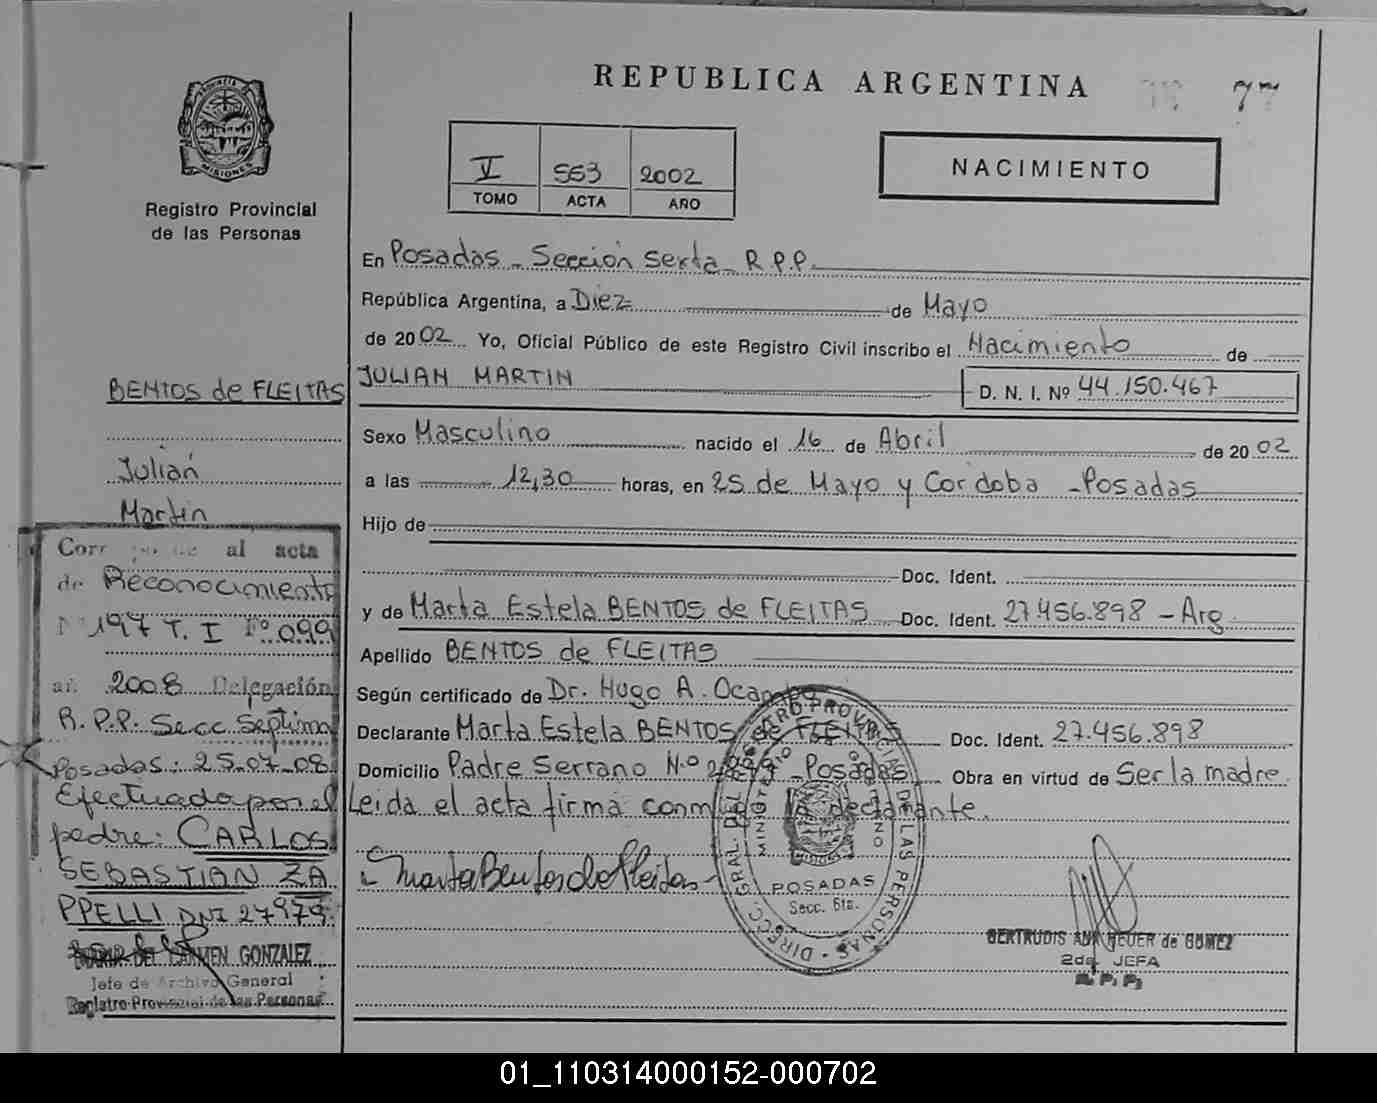 REPUBLICA ARGENTINA
77
PROVINCIA DE
MISIONES
Registro Provincial
de las Personas
V 553 2002
TOMO ACTA AÑO
NACIMIENTO
En Posadas - Sección Sexta - R.P.P.
República Argentina, a Diez de Mayo
de 2002 Yo, Oficial Público de este Registro Civil inscribo el Nacimiento de
JULIAN MARTIN D. N. I. Nº 44.150.467
Sexo Masculino nacido el 16 de Abril de 2002
a las 12,30 horas, en 25 de Mayo y Cordoba - Posadas
Hijo de
Doc. Ident.
y de Marta Estela BENTOS de FLEITAS Doc. Ident. 27.456.898 - Arg.
Apellido BENTOS de FLEITAS
Según certificado de Dr. Hugo A. Ocampo
Declarante Marta Estela BENTOS de FLEITAS Doc. Ident. 27.456.898
Domicilio Padre Serrano Nº - Posadas Obra en virtud de Ser la madre.
Leida el acta firma conmigo la declarante.
Marta Bentos de Fleitas
DIRECC. GRAL. DEL REGISTRO PROVINCIAL DE LAS PERSONAS
MINISTERIO GOBIERNO
POSADAS
Secc. 6ta.
GERTRUDIS ANA HEUER de GOMEZ
2da. JEFA
R. P. P.
BENTOS de FLEITAS
Julian
Martin
Corresponde al acta
de Reconocimiento
Nº 197 T. I Fº 099
año 2008 Delegación
R.P.P. Secc Septima
Posadas: 25-07-08
Efectuado por el
padre: CARLOS
SEBASTIAN ZA
PPELLI DNI 27979.
DEL CARMEN GONZALEZ
Jefe de Archivo General
Registro Provincial de las Personas
01_110314000152-000702